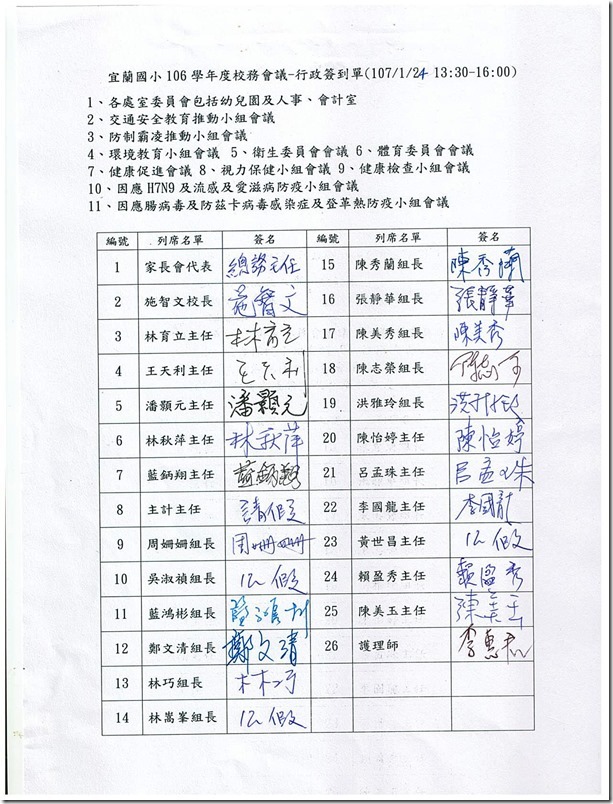 宜蘭國小 106 學年度校務會議-行政簽到單(107/1/24 13:30-16:00)
1、各處室委員會包括幼兒園及人事、會計室
2、交通安全教育推動小組會議
3、防制霸凌推動小組會議
4、環境教育小組會議 5、衛生委員會會議 6、體育委員會會議
7、健康促進會議 8、視力保健小組會議 9、健康檢查小組會議
10、因應 H7N9 及流感及愛滋病防疫小組會議
11、因應腸病毒及防茲卡病毒感染症及登革熱防疫小組會議
編號 列席名單 簽名 編號 列席名單 簽名
1 家長會代表 總務主任 15 陳秀蘭組長 陳秀蘭
2 施智文校長 施智文 16 張靜華組長 張靜華
3 林育立主任 林育立 17 陳美秀組長 陳美秀
4 王天利主任 王天利 18 陳志榮組長
5 潘顥元主任 潘顥元 19 洪雅玲組長 洪雅玲
6 林秋萍主任 林秋萍 20 陳怡婷主任 陳怡婷
7 藍鈵翔主任 藍鈵翔 21 呂孟珠主任 呂孟珠
8 主計主任 請假 22 李國龍主任 李國龍
9 周姍姍組長 周姍姍 23 黃世昌主任 公假
10 吳淑禎組長 公假 24 賴盈秀主任 賴盈秀
11 藍鴻彬組長 藍鴻彬 25 陳美玉主任 陳美玉
12 鄭文清組長 鄭文清 26 護理師
13 林巧組長 林巧
14 林嵩峯組長 公假